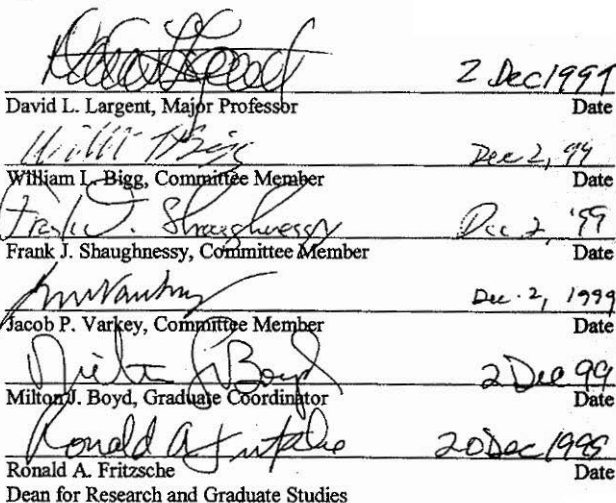 2 Dec 1999
David L. Largent, Major Professor Date
William L. Bigg Dec 2, 99
William L. Bigg, Committee Member Date
Frank J. Shaughnessy Dec. 2, '99
Frank J. Shaughnessy, Committee Member Date
Dec. 2, 1999
Jacob P. Varkey, Committee Member Date
Milton J Boyd 2 Dec 99
Milton J. Boyd, Graduate Coordinator Date
Ronald A Fritzsche 20 Dec 1999
Ronald A. Fritzsche Date
Dean for Research and Graduate Studies